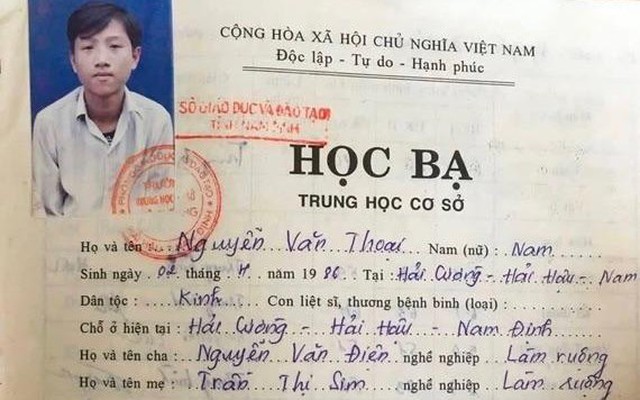 CỘNG HÒA XÃ HỘI CHỦ NGHĨA VIỆT NAM
Độc lập - Tự do - Hạnh phúc
SỞ GIÁO DỤC VÀ ĐÀO TẠO
TỈNH NAM ĐỊNH
HỌC BẠ
TRUNG HỌC CƠ SỞ
Họ và tên : Nguyễn Văn Thoại Nam (nữ) : Nam
Sinh ngày 02 tháng 4 năm 1986 Tại : Hải Cường - Hải Hậu - Nam
Dân tộc : Kinh Con liệt sĩ, thương bệnh binh (loại) :
Chỗ ở hiện tại : Hải Cường - Hải Hậu - Nam Định
Họ và tên cha : Nguyễn Văn Điện nghề nghiệp : Làm ruộng
Họ và tên mẹ : Trần Thị Sim nghề nghiệp : Làm ruộng